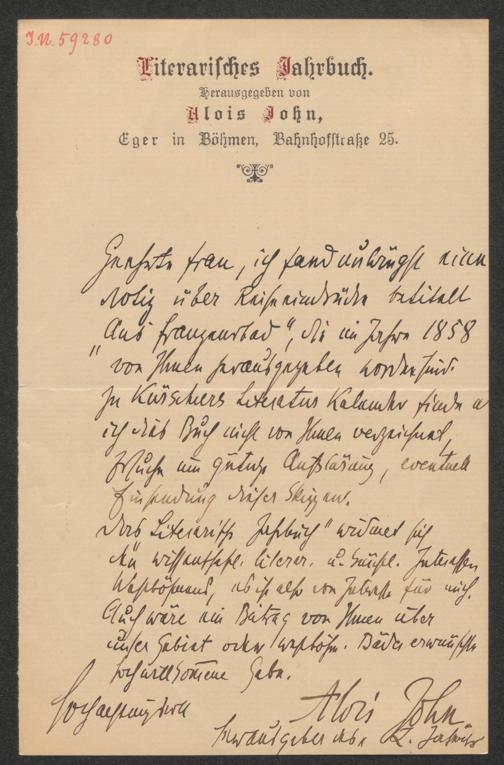 I.N. 59280
Literarisches Jahrbuch.
Herausgegeben von
Alois John,
Eger in Böhmen, Bahnhofstraße 25.
Geehrte Frau, ich fand unlängst eine
Notiz über Reiseeindrücke betitelt
„Aus Franzensbad", die im Jahre 1858
von Ihnen herausgegeben worden sind.
In Kürschners Literatur Kalender finde
ich das Buch nicht von Ihnen verzeichnet,
ersuche um gütige Aufklärung, eventuell
Einsendung dieser Skizzen.
Das Literarische Jahrbuch" widmet sich
den wissenschaftl. literar. u. künstl. Interessen
Westböhmens, es ist also von Interesse für mich.
Auch wäre ein Beitrag von Ihnen über
unser Gebiet oder westböhm. Bäder erwünschte
hochwillkommene Gabe.
Hochachtungsvoll
Alois John
Herausgeber des L. Jahrb